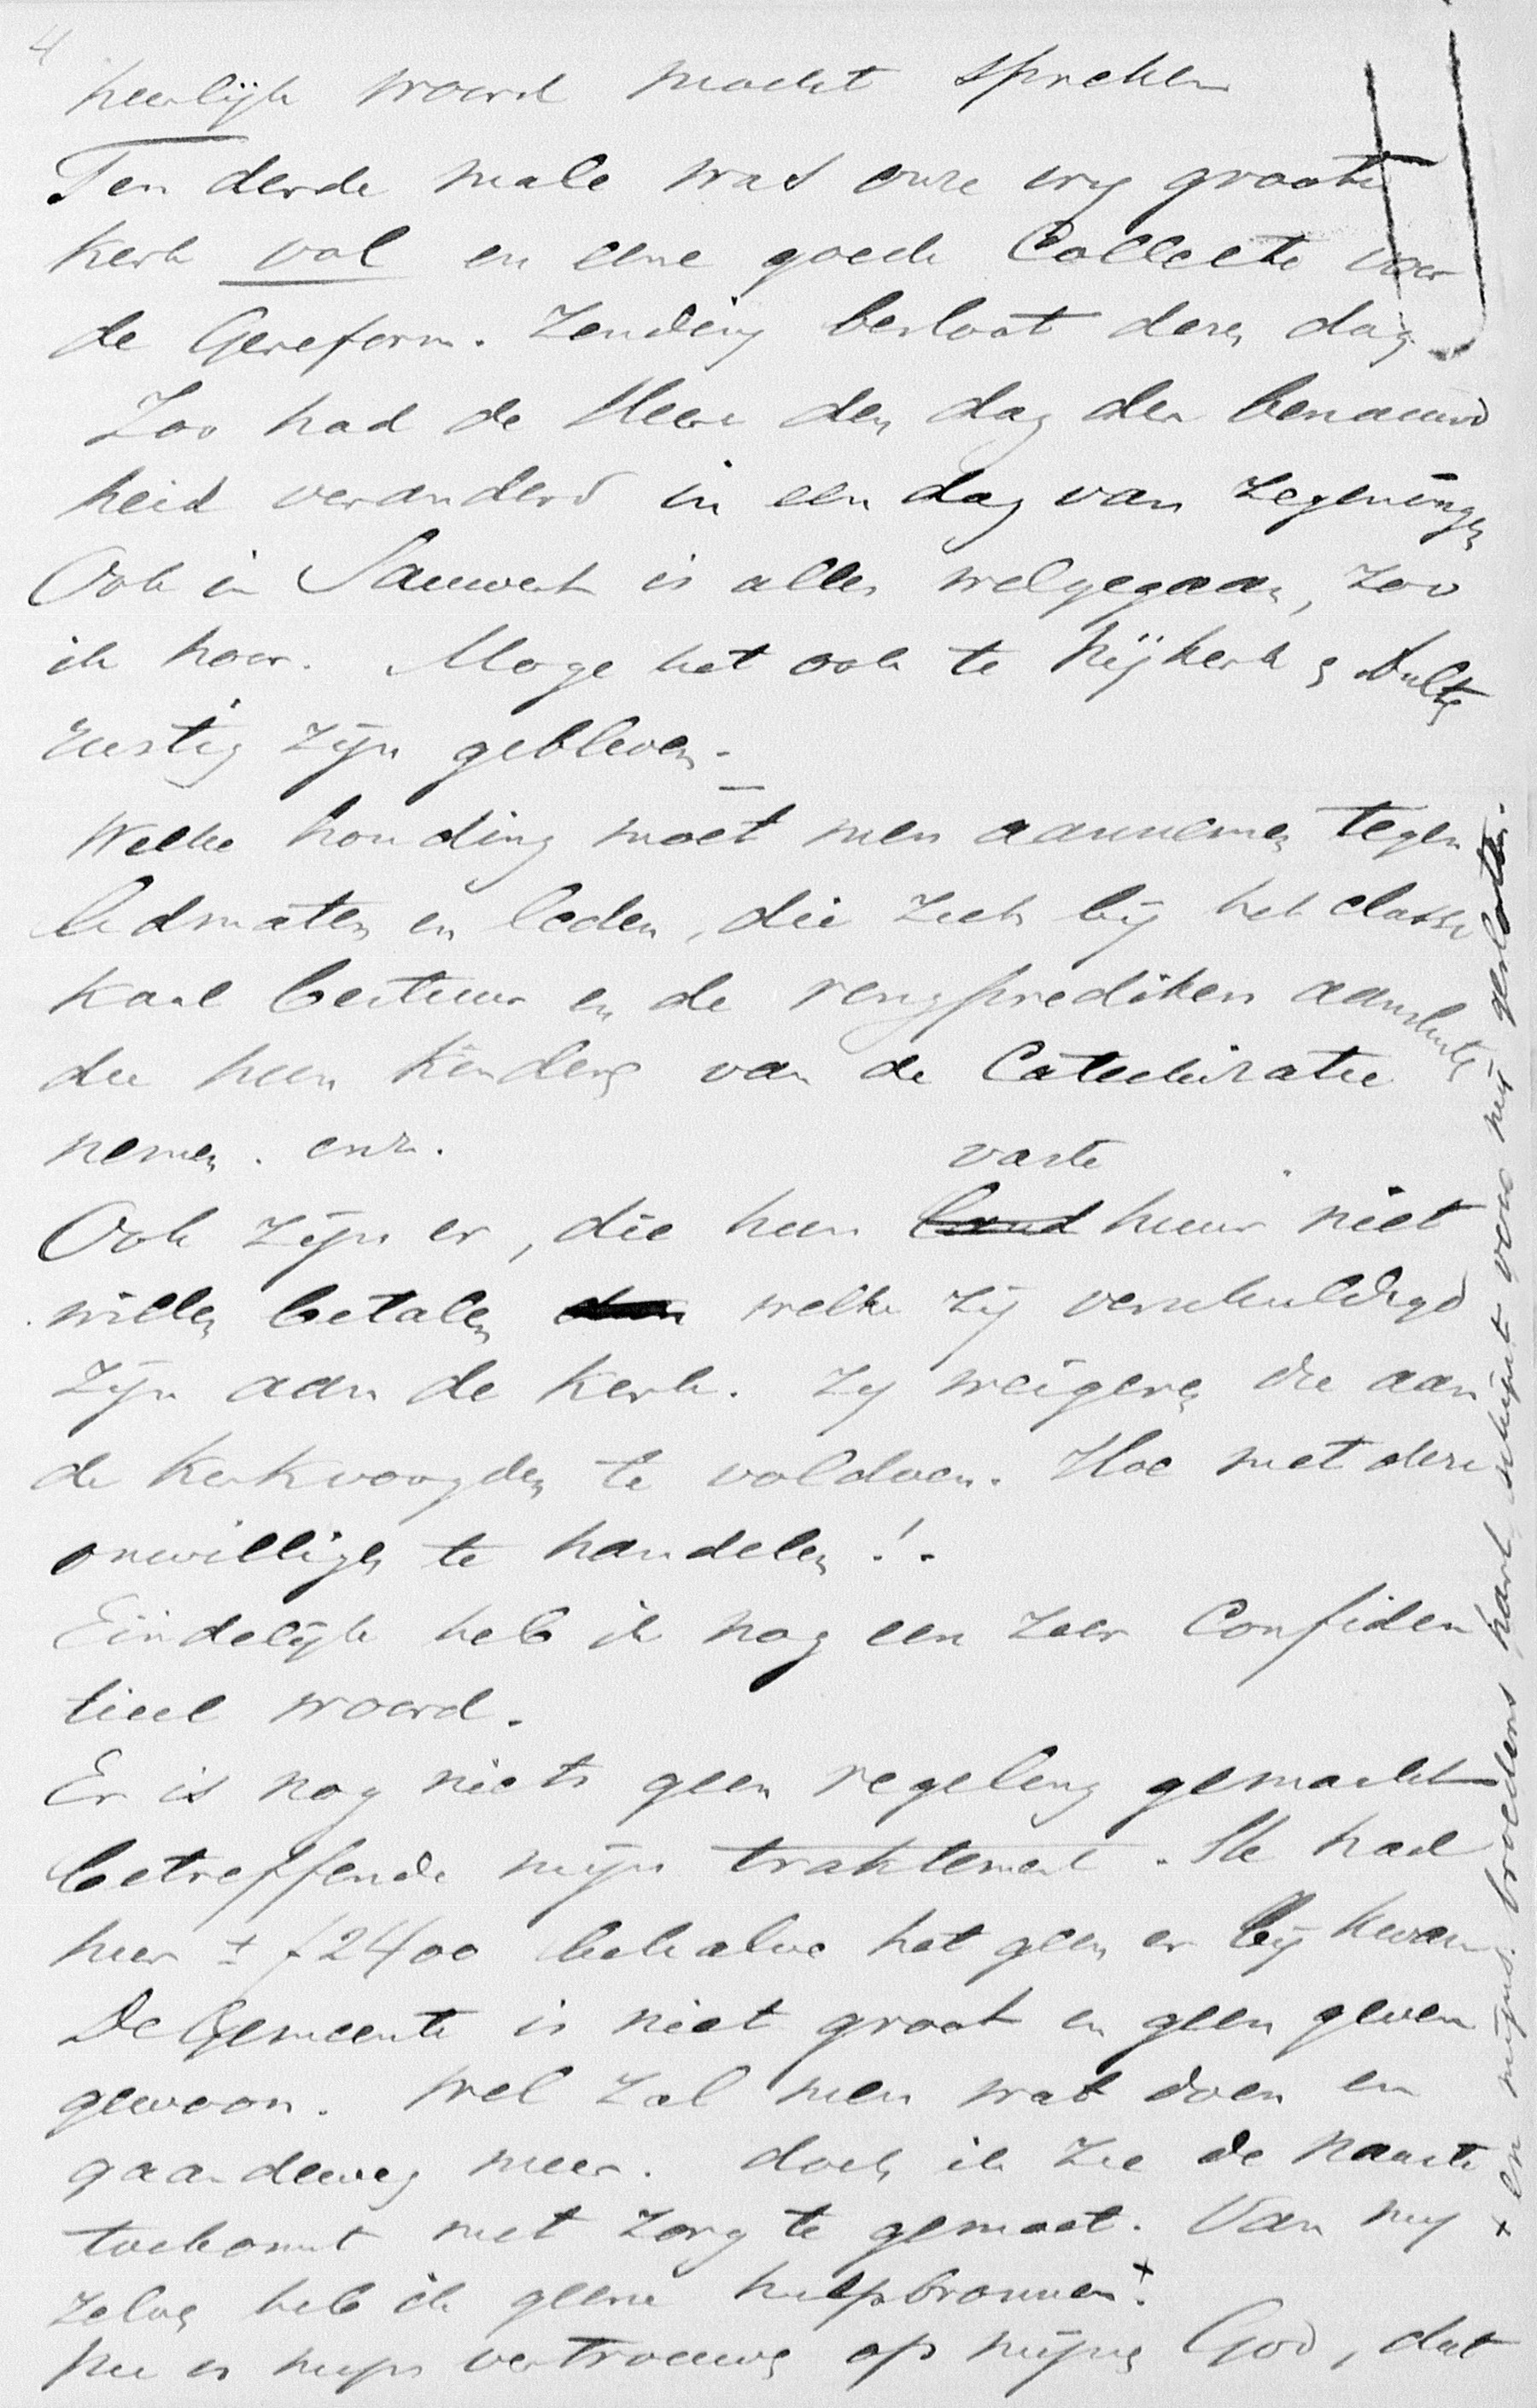 4
heerlijk woord mocht spreken
Ten derde male was onze vrij groote
Kerk vol en eene goede Collecte voor
de Gereform. Zending besloot dezen dag.
Zoo had de Heere den dag der benauwd
heid veranderd in een dag van zegeningen
Ook in Sauwert is alles welgegaan, zoo
ik hoor. Moge het ook te Nijkerk &
rustig zijn gebleven. -
Welke houding moet men aannemen tegen
lidmaten en leden, die zich bij het classi
kaal bestuur en de ringpredikers aansluiten
die hun kinderen van de Catechisatie
nemen. enz.
vaste
Ook zijn er, die hun land huur niet
willen betalen welke zij verschuldigd
zijn aan de Kerk. Zij weigeren die aan
de Kerkvoogden te voldoen. Hoe met deze
onwilligen te handelen!.
Eindelijk heb ik nog een zeer Confiden
tieel woord.
Er is nog niets geen regeling gemaakt
betreffende mijn traktement. Ik had
hier ± f 2400 behalve het geen er bij kwam
De Gemeente is niet groot en geen geven
gewoon. Wel zal men wat doen en
gaandeweg meer. doch ik zie de naaste
toekomst met zorg te gemoet. Van mij
zelven heb ik geene hulpbronnen. x
Nu is mijn vertrouwen op mijnen God, dat
x en mijns broeders hart schijnt voor mij gesloten.